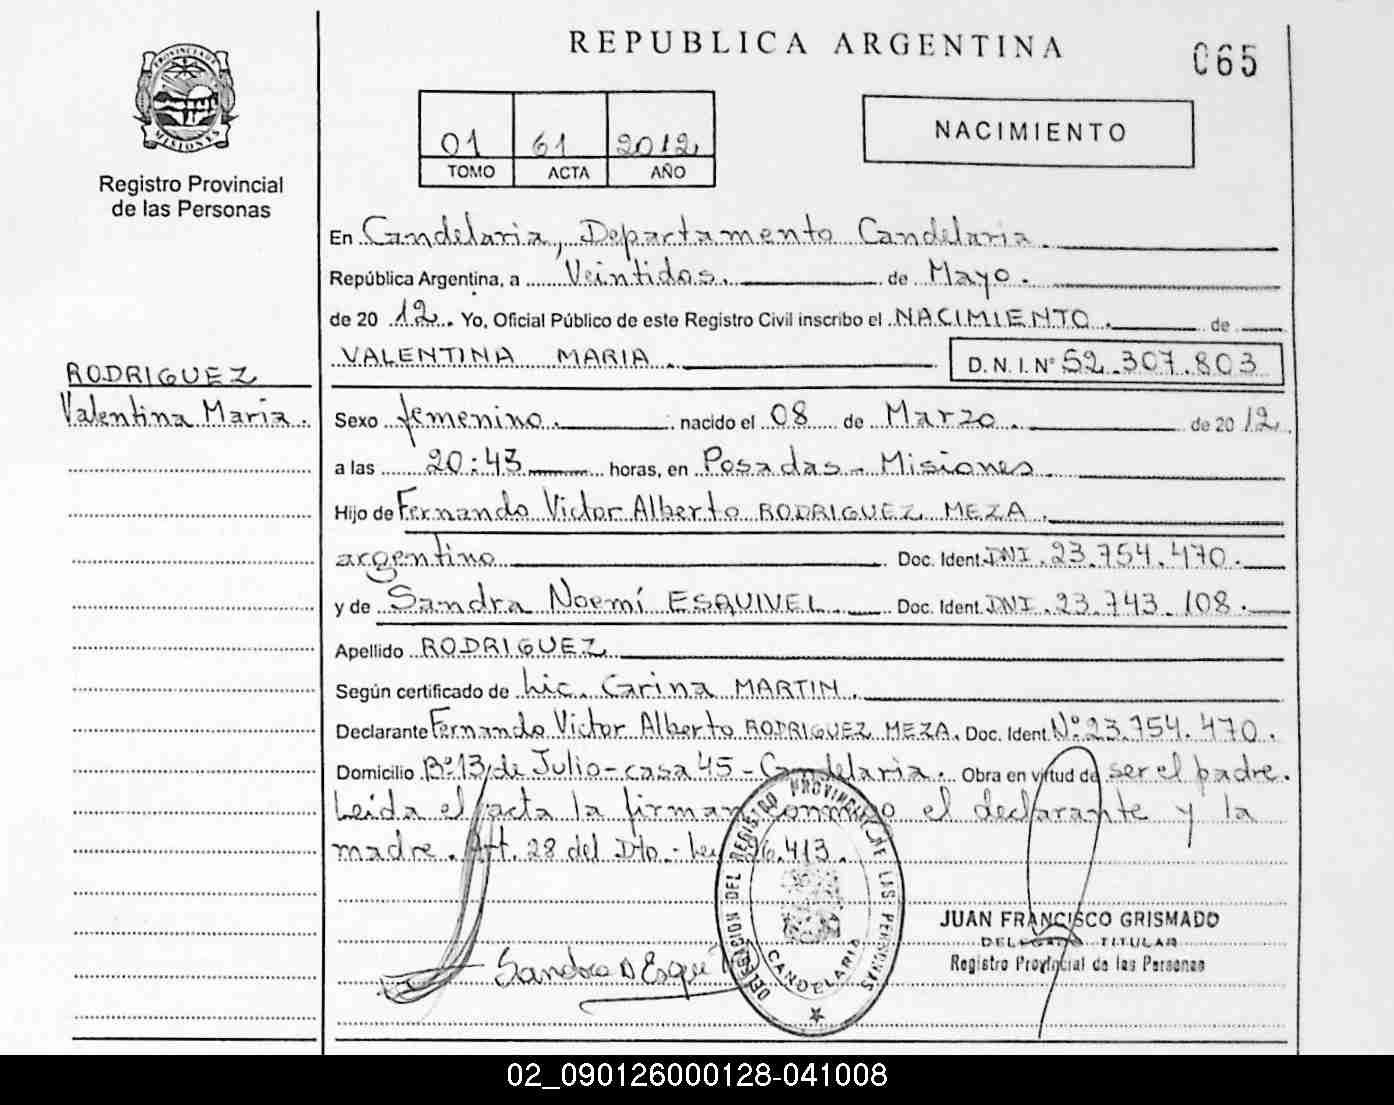 REPUBLICA ARGENTINA
065
PROVINCIA DE
MISIONES
Registro Provincial
de las Personas
01 61 2012
TOMO ACTA AÑO
NACIMIENTO
En Candelaria, Departamento Candelaria.
República Argentina, a Veintidos. de Mayo.
de 20 12. Yo, Oficial Público de este Registro Civil inscribo el NACIMIENTO. de
VALENTINA MARIA. D.N.I. Nº 52.307.803
RODRIGUEZ
Valentina Maria.
Sexo femenino. nacido el 08 de Marzo. de 20 12.
a las 20:43 horas, en Posadas - Misiones.
Hijo de Fernando Victor Alberto RODRIGUEZ MEZA.
argentino. Doc. Ident. DNI. 23.754.470.
y de Sandra Noemí ESQUIVEL. Doc. Ident. DNI. 23.743.108.
Apellido RODRIGUEZ
Según certificado de Lic. Carina MARTIN.
Declarante Fernando Victor Alberto RODRIGUEZ MEZA. Doc. Ident. Nº 23.754.470.
Domicilio Bº 13 de Julio - casa 45 - Candelaria. Obra en virtud de ser el padre.
Leida el acta la firman conmigo el declarante y la
madre. Art. 28 del Dto. - Ley 26.413.
DELEGACION DEL REGISTRO PROVINCIAL DE LAS PERSONAS
CANDELARIA
JUAN FRANCISCO GRISMADO
DELEGADO TITULAR
Registro Provincial de las Personas
Sandra N Esqui
02_090126000128-041008